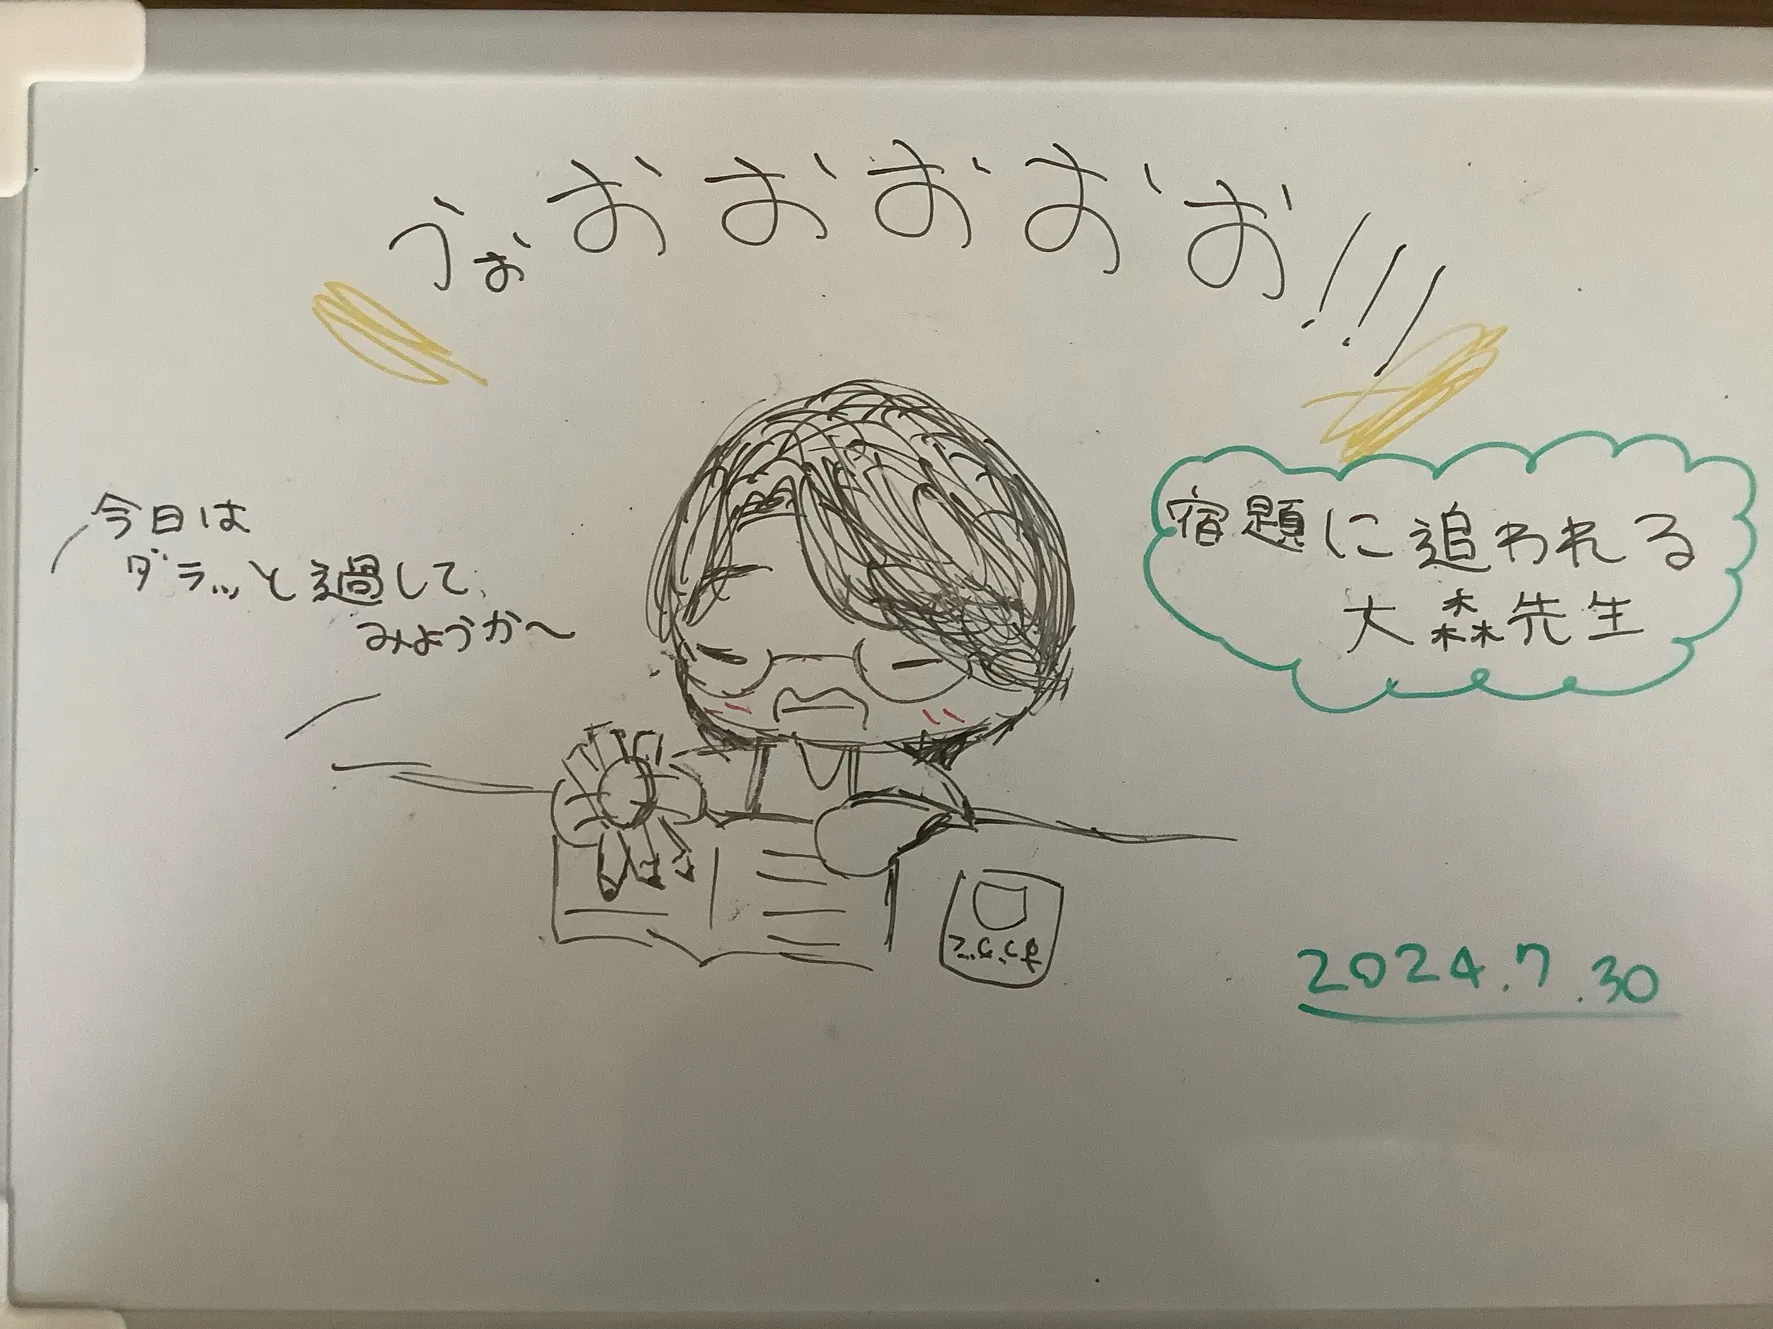 うぉおおおおお!!!
今日は
ダラッと過して
みようか〜
宿題に追われる
大森先生
2024.7.30